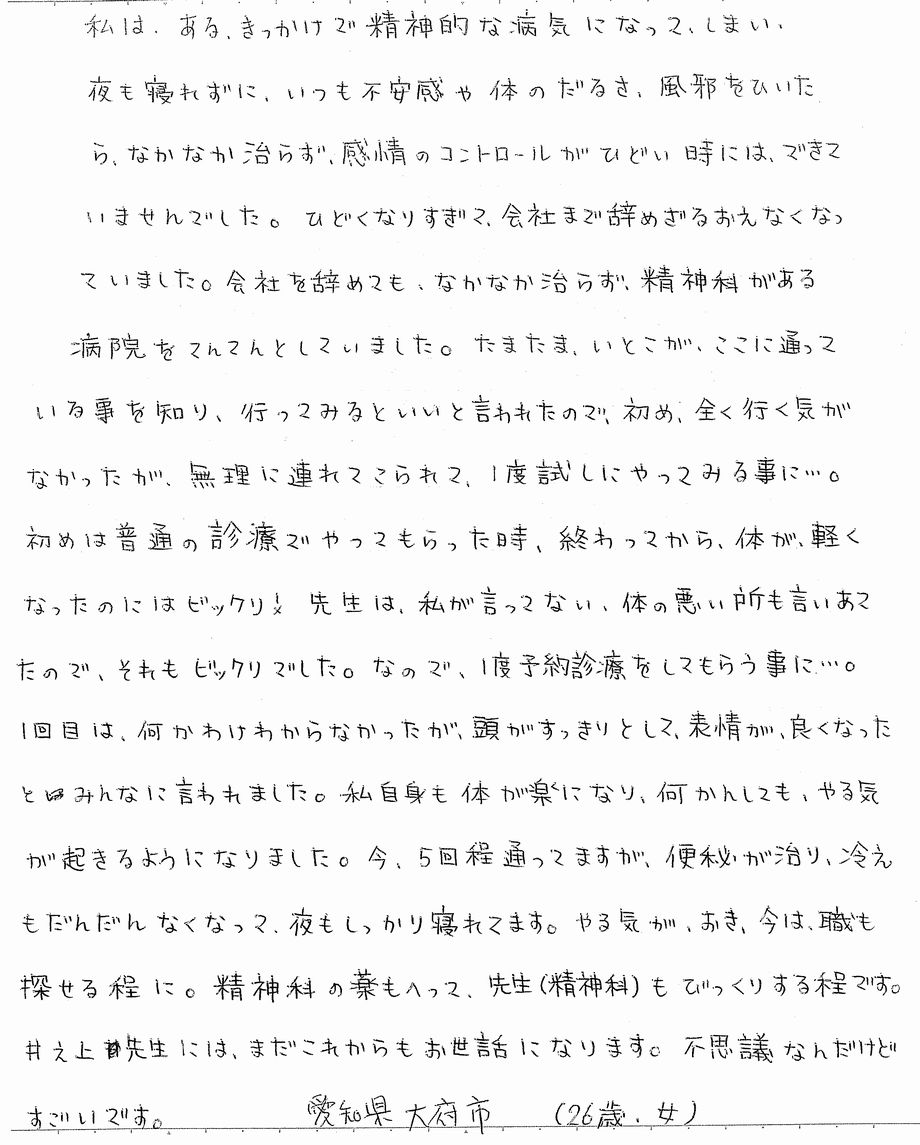 私は、ある、きっかけで精神的な病気になって、しまい、
夜も寝れずに、いつも不安感や体のだるさ、風邪をひいた
ら、なかなか治らず、感情のコントロールがひどい時には、できて
いませんでした。ひどくなりすぎて、会社まで辞めざるおえなくなっ
ていました。会社を辞めても、なかなか治らず、精神科がある
病院をてんてんとしていました。たまたま、いとこが、ここに通って
いる事を知り、行ってみるといいと言われたので、初め、全く行く気が
なかったが、無理に連れてこられて、1度試しにやってみる事に…。
初めは普通の診療でやってもらった時、終わってから、体が、軽く
なったのにはビックリ!! 先生は、私が言ってない、体の悪い所も言いあて
たので、それもビックリでした。なので、1度予約診療をしてもらう事に…。
1回目は、何かわけわからなかったが、頭がすっきりとして、表情が、良くなった
とみんなに言われました。私自身も体が楽になり、何かんしても、やる気
が起きるようになりました。今、5回程通ってますが、便秘が治り、冷え
もだんだんなくなって、夜もしっかり寝れてます。やる気が、おき、今は、職も
探せる程に。精神科の薬もへって、先生(精神科)もびっくりする程です。
井之上先生には、まだこれからもお世話になります。不思議なんだけど
すごいです。 愛知県大府市 (26歳、女)